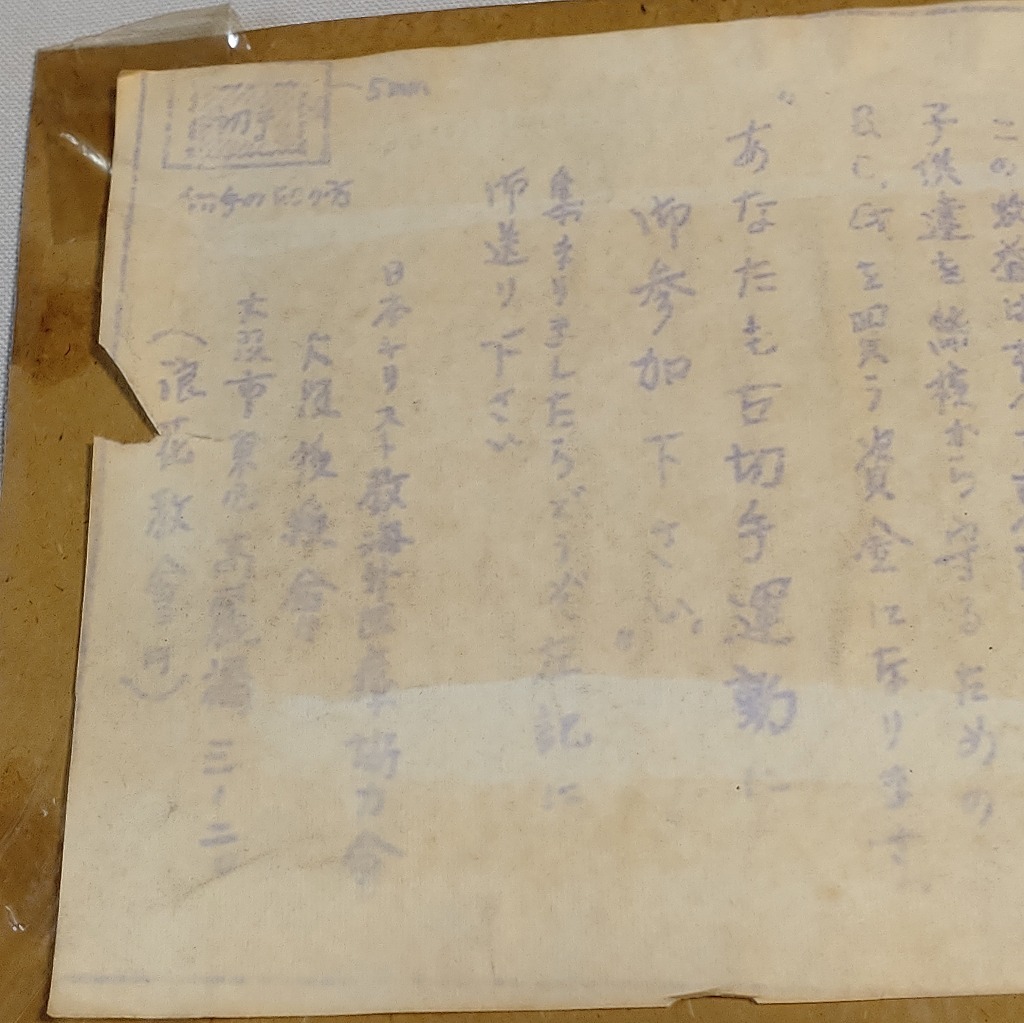 子供達を結核から守るための
B.C.Gを買う資金になります
"あなたも古切手運動に
御参加下さい"
集まりましたらどうぞ左記に
御送り下さい
日本キリスト教海外医療協力会
大阪後援会
大阪市東区高麗橋 三ノ二
(浪花教会内)
切手
5mm
切手の切り方